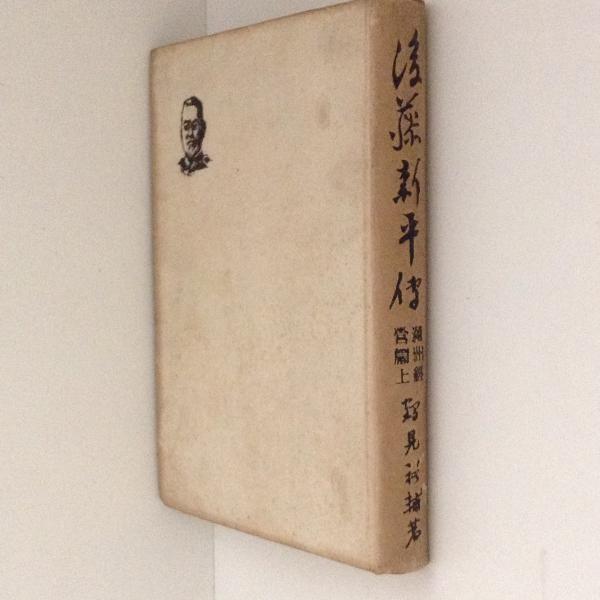 後藤新平傳
滿州經
營篇上
鶴見祐輔著